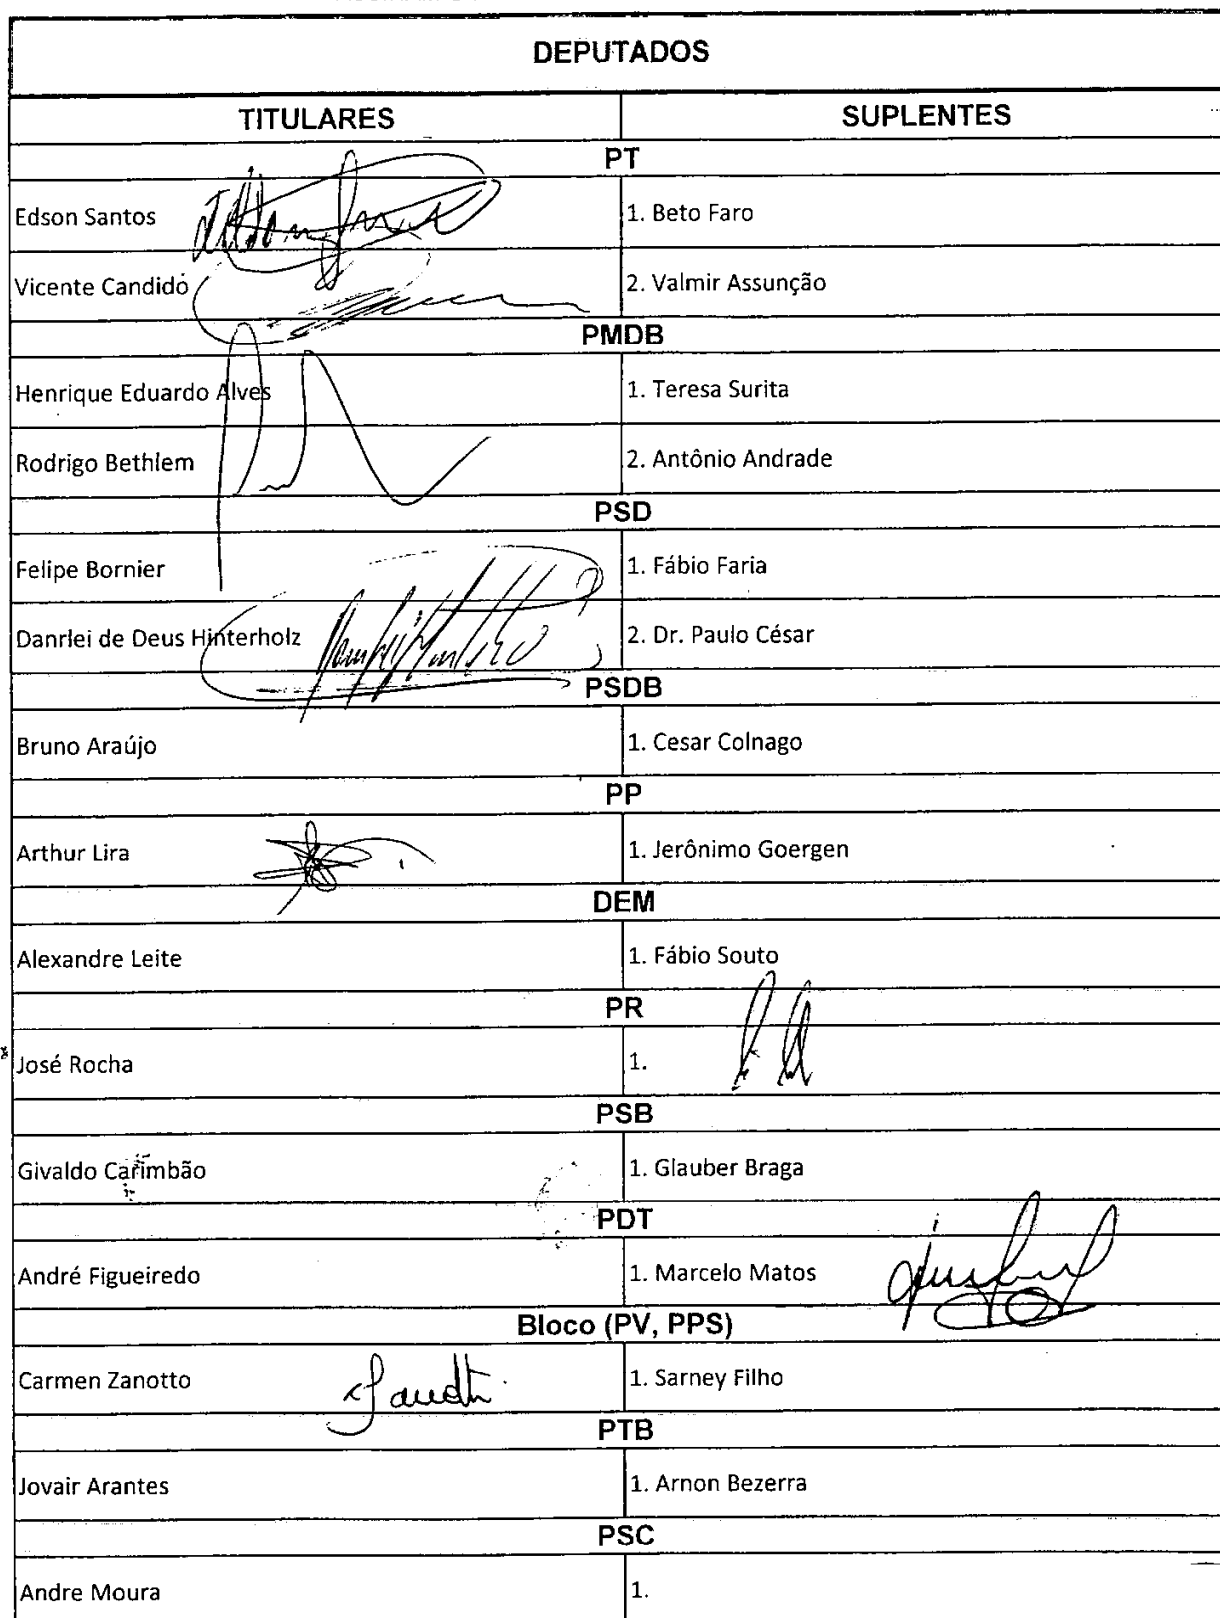 DEPUTADOS
TITULARES SUPLENTES
PT
Edson Santos 1. Beto Faro
Vicente Candido 2. Valmir Assunção
PMDB
Henrique Eduardo Alves 1. Teresa Surita
Rodrigo Bethlem 2. Antônio Andrade
PSD
Felipe Bornier 1. Fábio Faria
Danrlei de Deus Hinterholz 2. Dr. Paulo César
PSDB
Bruno Araújo 1. Cesar Colnago
PP
Arthur Lira 1. Jerônimo Goergen
DEM
Alexandre Leite 1. Fábio Souto
PR
José Rocha 1.
PSB
Givaldo Carimbão 1. Glauber Braga
PDT
André Figueiredo 1. Marcelo Matos
Bloco (PV, PPS)
Carmen Zanotto 1. Sarney Filho
PTB
Jovair Arantes 1. Arnon Bezerra
PSC
Andre Moura 1.